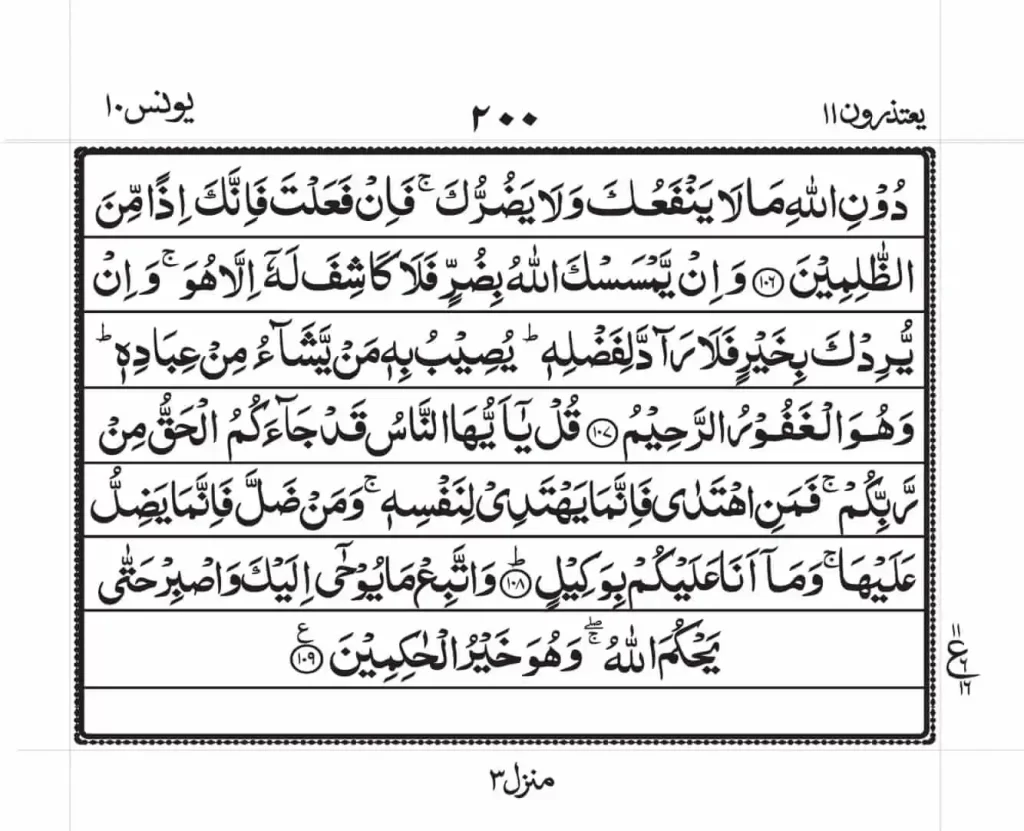 یعتذرون ۱۱ ۲۰۰ یونس ۱۰
دُوْنِ اللّٰهِ مَا لَا يَنْفَعُكَ وَلَا يَضُرُّكَ ۚ فَاِنْ فَعَلْتَ فَاِنَّكَ اِذًا مِّنَ
الظّٰلِمِيْنَ ۱۰۶ وَ اِنْ يَّمْسَسْكَ اللّٰهُ بِضُرٍّ فَلَا كَاشِفَ لَهٗۤ اِلَّا هُوَ ۚ وَ اِنْ
يُّرِدْكَ بِخَيْرٍ فَلَا رَآدَّ لِفَضْلِهٖ ؕ يُصِيْبُ بِهٖ مَنْ يَّشَآءُ مِنْ عِبَادِهٖ ؕ
وَهُوَ الْغَفُوْرُ الرَّحِيْمُ ۱۰۷ قُلْ يٰۤاَيُّهَا النَّاسُ قَدْ جَآءَكُمُ الْحَقُّ مِنْ
رَّبِّكُمْ ۚ فَمَنِ اهْتَدٰى فَاِنَّمَا يَهْتَدِىْ لِنَفْسِهٖ ۚ وَمَنْ ضَلَّ فَاِنَّمَا يَضِلُّ
عَلَيْهَا ۚ وَمَاۤ اَنَا عَلَيْكُمْ بِوَكِيْلٍ ؕ ۱۰۸ وَاتَّبِعْ مَا يُوْحٰۤى اِلَيْكَ وَاصْبِرْ حَتّٰى
يَحْكُمَ اللّٰهُ ۖۚ وَهُوَ خَيْرُ الْحٰكِمِيْنَ ۱۰۹ ع
۱۱
ع ۶
۱۶
منزل ۳